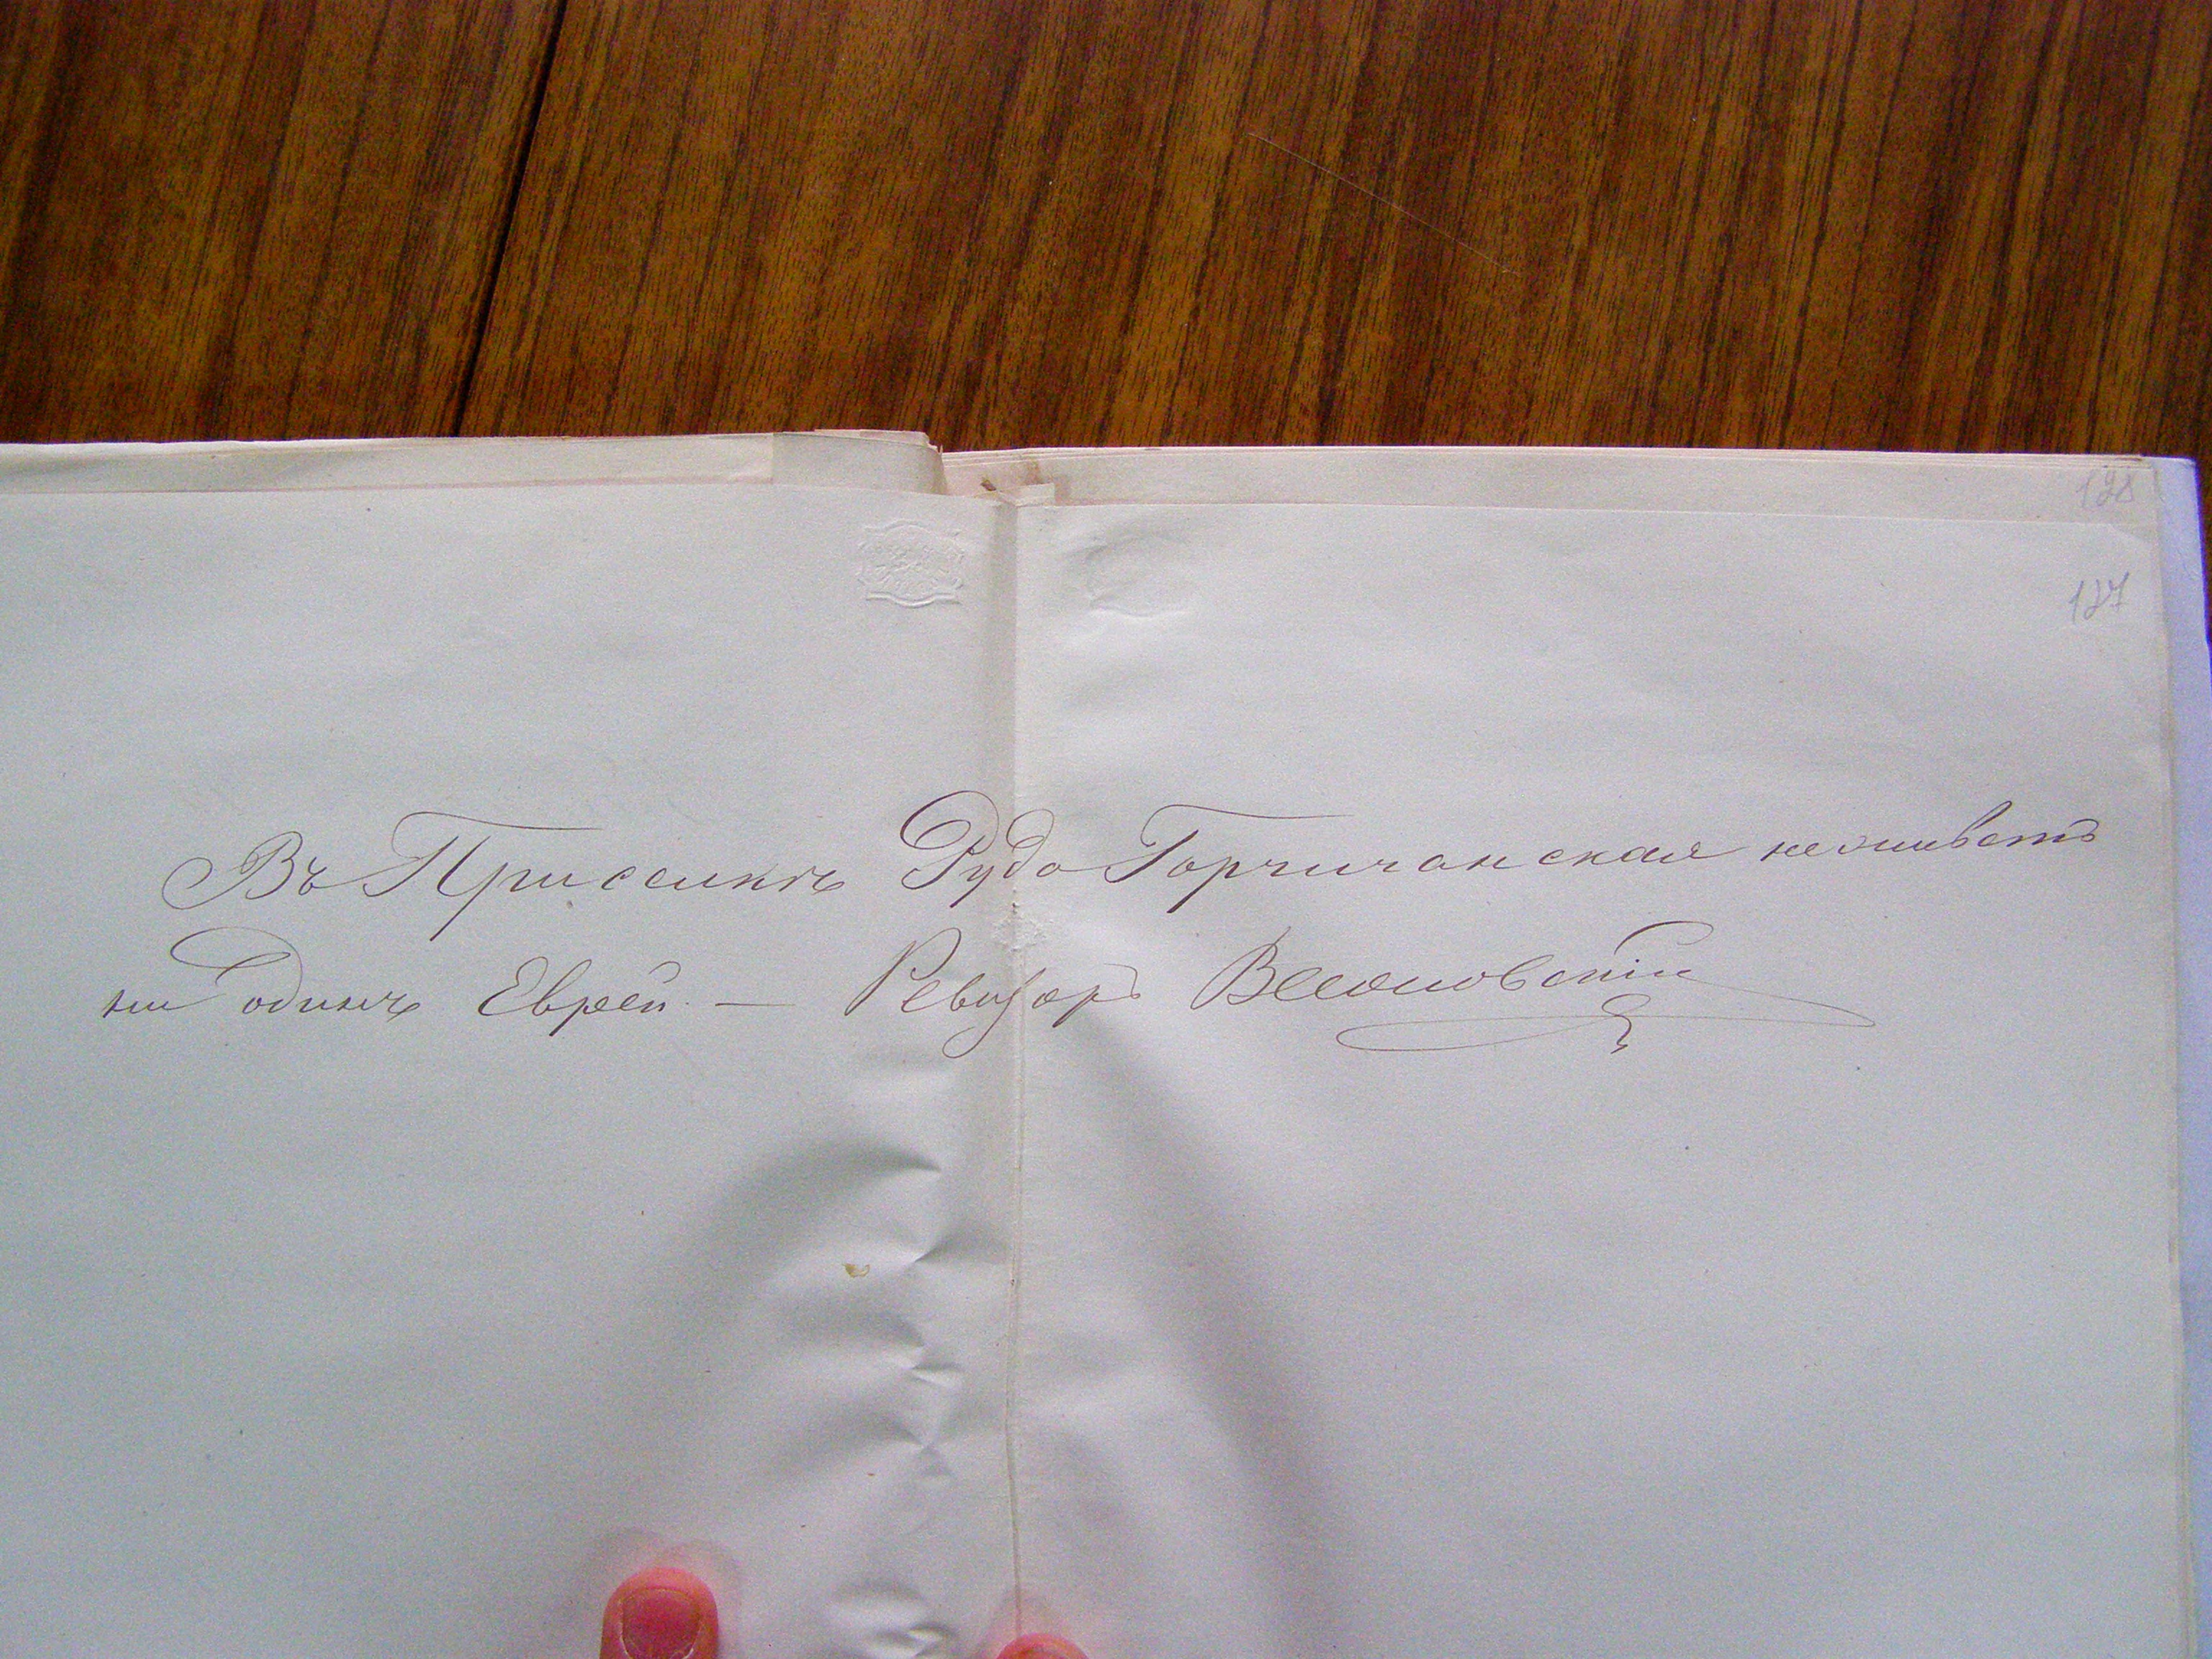 128
127
Въ Приселкѣ Руда Горчичанская не живетъ
ни одинъ Еврей. — Ревизоръ